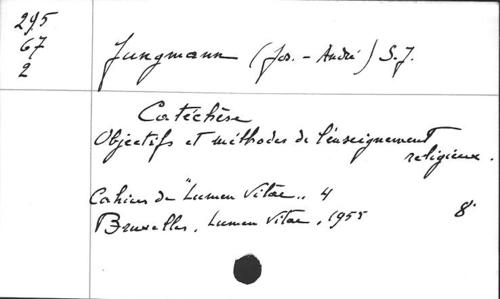 295
67
2
Jungmann (Jos. - André) S.J.
Catéchèse
Objectifs et méthodes de l'enseignement
religieux.
Cahiers de "Lumen Vitae" 4
Bruxelles, Lumen Vitae, 1955
8°